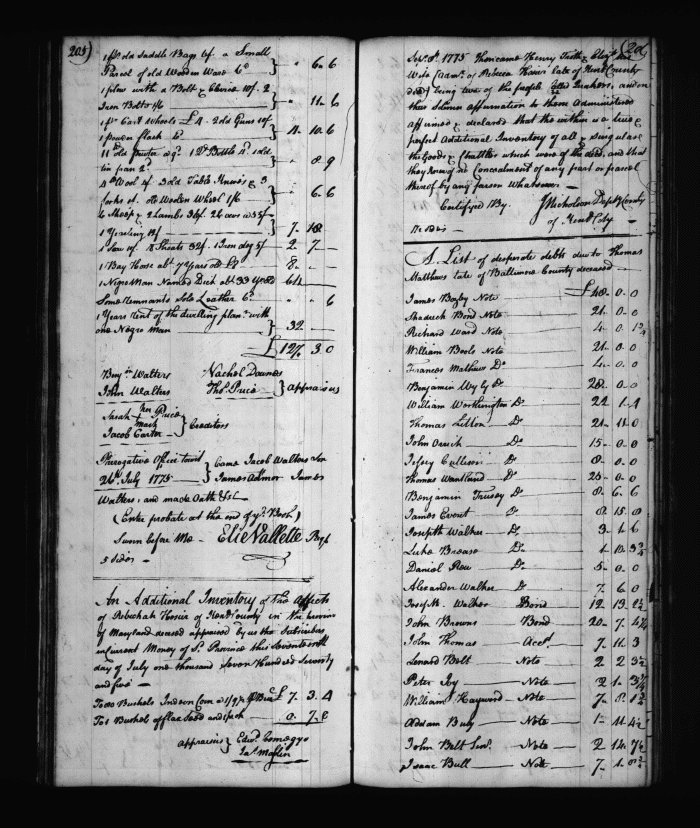 205)
1 pr. old Saddle Bags 4/. a Small
Parcel of old Wooden Ware 6d } " 6 6
1 plow with a Bolt & Clevice 10/. 2
Iron Bolts 1/6 } " 11 6
1 pr Cart Wheels £4. 2 old Guns 10/
1 powder flask 6d } 4 10 6
11 lb old Pewter a 9d. 1 Bottle 4d. 1 old
tin pan 2d } " 8 9
4 lb Wool 4/. 3 old Table Knives & 3
forks 1/. 1 Woolen Wheel 1/6 } " 6 6
6 Sheep & 2 Lambs 36/. 26
1 Yearling 12/ } 7 18
1 Sow 4/. 8 Shoats 32/. 1 Iron dog 5/ 2 7
1 Bay Horse abt. 7 Years old £8 8
1 Negro Man Named Dick abt. 33 Years 64
Some Remnants Sole Leather 6d " " 6
1 Years rent of the dwelling plann. with
one Negro Man } 32
£ 127 3 0
Benjn Walters Nachel Downes
John Walters Thos. Price } appraisers
Sarah her mark Price
Jacob Carter } Creditors
Prerogative Office
26th July 1775 } Came Jacob Walters
James
Walters, and made Oath &c
(Enter probate at the end of ye. Book)
Sworn before Me - Elie Vallette Regr
5 sides -
An Additional Inventory of the Affects
of Rebeckah Hosier of Kent County in the Province
of Maryland deceased appraised by us the Subscribers
in Current Money of sd. Province this Seventeenth
day of July one thousand Seven Hundred Seventy
and five -
Bushels Indian Corn a 1/9 £ 7. 3. 4
To 2 Bushel of flax Seed 0. 7. 0
appraisers } Edwd. Comegys
Jas. Maslin
206
Sepr. 1775 then came Henry & his
Wife (Admx. of Rebecca Hosier late of Kent County
deced) being two of the people Called Quakers, and on
their Solemn affirmation to them Administered
affirmed & declared that the within is a true &
perfect Additional Inventory of all & Singular
the Goods & Chattles which were of the deced, and that
they know no Concealment of any part or parcel
thereof by any person Whatsoever -
Certifyed By. J Nicholson Depty Comry
of Kent Coty
A List of desperate debts due to Thomas
Matthews late of Baltimore County deceased
James Bozley Note £48. 0. 0
Shadrick Bond Note 21. 0. 0
Richard Ward Note 4. 0. 1¾
William Bools Note 21. 0. 0
Frances Mathews Do 4. 0. 0
Benjamin Wyly Do 28. 0. 0
William Worthington Do 22 1. 4
Thomas Litton Do 21. 11. 0
John Orrick Do 15. 0. 0
Do 8. 0. 0
Thomas Wantland Do 25. 0. 0
Benjamin Do 8. 6. 6
James Do 8. 15. 8
Joseph Walker Do 3. 1. 6
Luke Do 1. 10. 3¾
Daniel Do 5. 0. 0
Alexander Walker Do 7. 6. 0
Walker Bond 12. 13. 2½
John Browns Bond 20. 7. 4½
John Thomas Acct. 7. 11. 3
Lenard Belt Note 2 2 3½
Peter Note 2 1. 3¾
William Hayward Note 7. 8. 1½
Addam Note 1 11. 4½
John Bell Senr. Note 2 14. 7½
Isaac Bull Note 7. 1. 0¾